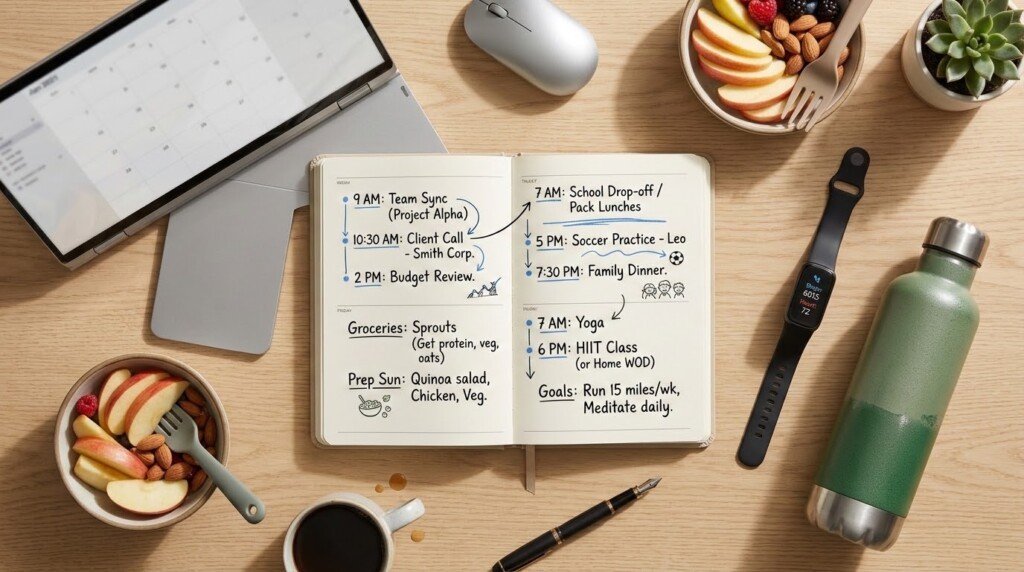 9 AM: Team Sync
(Project Alpha)
10:30 AM: Client Call
- Smith Corp.
2 PM: Budget Review.
FRIDAY
Groceries: Sprouts
(Get protein, veg,
oats)
Prep Sun: Quinoa salad,
Chicken, Veg.
7 AM: School Drop-off /
Pack Lunches
5 PM: Soccer Practice - Leo
7:30 PM: Family Dinner.
7 AM: Yoga
6 PM: HIIT Class
(or Home WOD)
Goals: Run 15 miles/wk,
Meditate daily.
6015
72